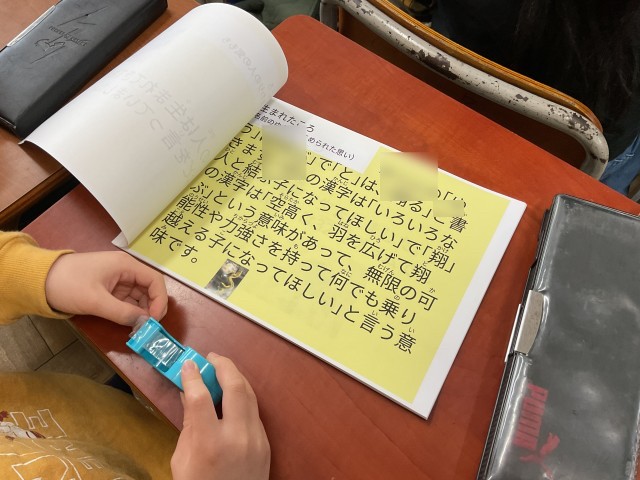 生まれたころ
名前の
められた思い)
う」
ぶ」で「と」は、
る」と書
きま
の漢字は「いろいろな
人と結ぶ子になってほしい」で「翔」
の漢字は「空高く、羽を広げて翔
ぶ」という意味があって、無限の可
能性や力強さを持って何でも乗り
越える子になってほしい」と言う意
味です。
PUMA